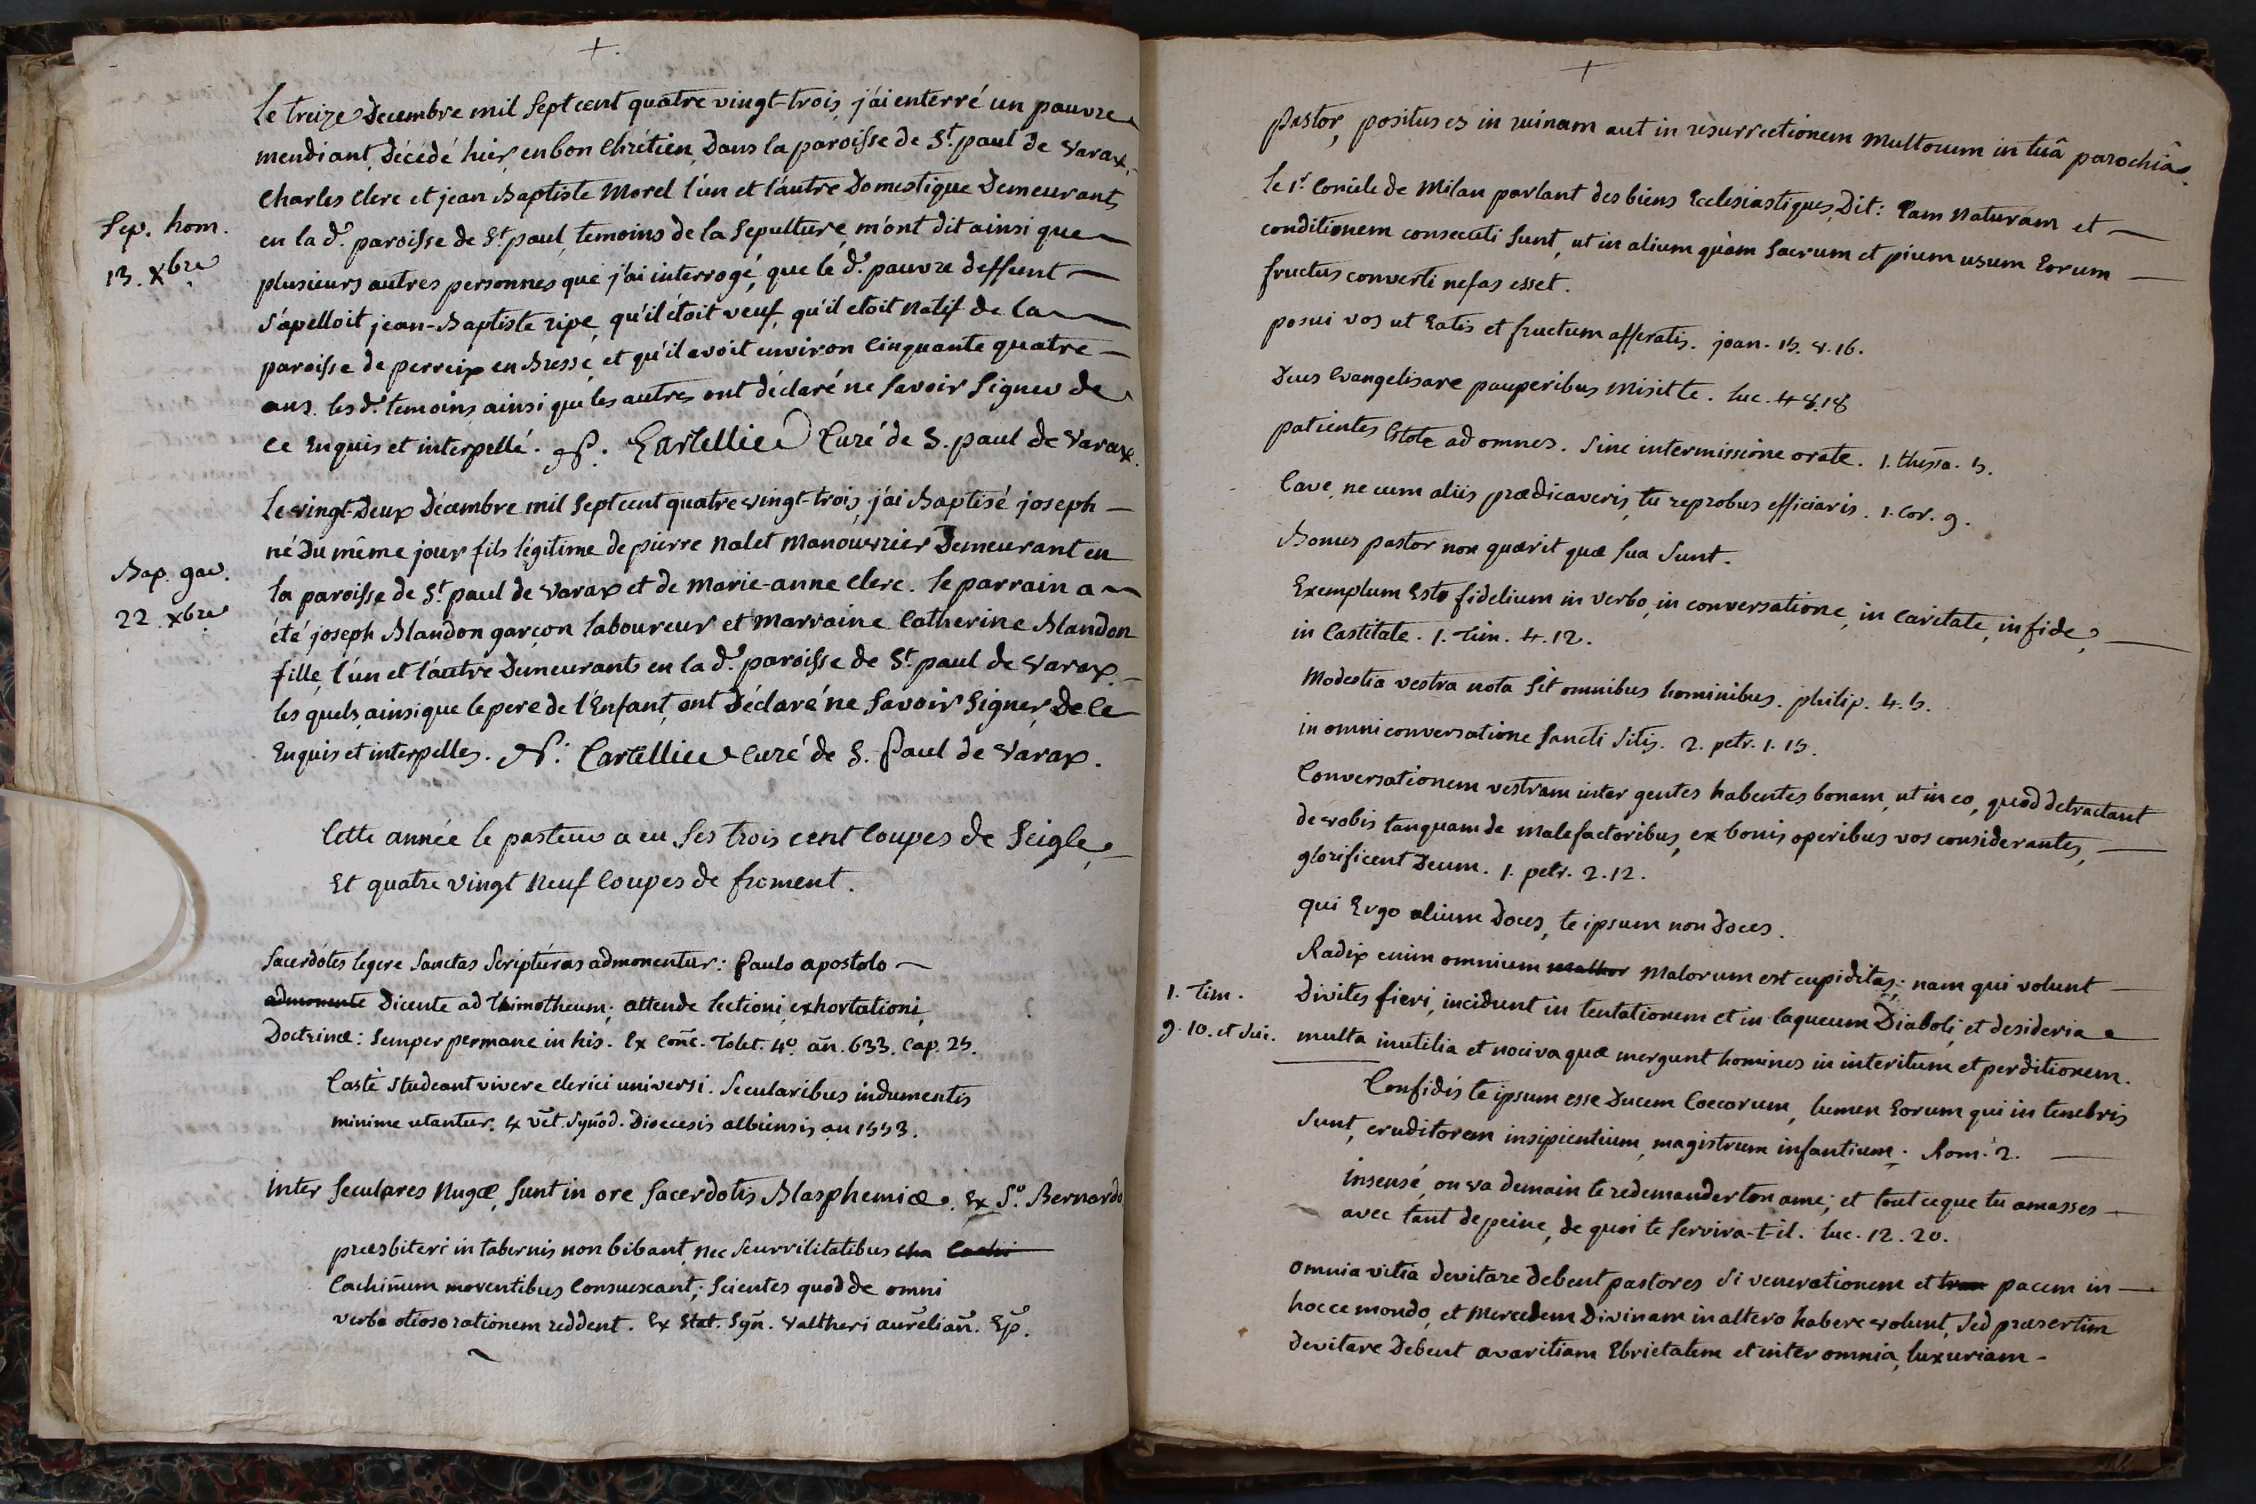 +
Le treize Decembre mil sept cent quatre vingt-trois, j'ai enterré un pauvre
mendiant, Décédé hier en bon Chrétien, Dans la paroisse de St. paul de Varax.
Charles Clerc et jean Baptiste Morel l'un et l'autre Domestique Demeurants
Sep. hom.
13. Xbre
en la de. paroisse de St. paul, temoins de la Sepulture, m'ont dit ainsi que
plusieurs autres personnes que j'ai interrogé, que le dt. pauvre deffunt
s'apelloit jean-Baptiste ripe, qu'il étoit veuf, qu'il etoit natif de la
paroisse de perreix en Bresse, et qu'il avoit environ Cinquante quatre
ans. lesd. temoins ainsi que les autres ont déclaré ne Savoir Signer de
ce Enquis et interpellé. P. Cartellier Curé de S. paul de Varax.
Le vingt-Deux Décembre mil Sept cent quatre vingt-trois, j'ai Baptisé joseph
né Du même jour fils légitime de pierre Nalet Manouvrier Demeurant en
Bap. gar.
22. xbre
la paroisse de St. paul de Varax et de Marie-anne Clerc. le parrain a
été joseph Blandon garçon laboureur et Marraine Catherine Blandon
fille, l'un et l'autre Demeurants en la de. paroisse de St. paul de Varax.
les quels, ainsi que le pere de l'Enfant, ont Déclaré ne Savoir Signer, De Ce
Enquis et interpelles. P. Cartellier Curé de S. Paul de Varax.
Cette année le pasteur a eu Ses trois cent Coupes de Seigle,
Et quatre vingt Neuf Coupes de froment.
Sacerdótes legere Sanctas Scriptúras admonentur: Paulo apostolo
admonente Dicente ad thimotheum; attende lectioni, exhortationi,
Doctrinæ: Semper permane in his. Ex Conc. Tolet. 4o. an. 633. Cap. 25.
Castè studeant vivere clerici universi. Secularibus indumentis
minime utantur. Ex vet. Synod. Dioecesis albiensis an 1553.
Inter Seculares Nugæ, Sunt in ore Sacerdotis Blasphemiæ. Ex So. Bernardo
præsbiteri in tabernis non bibant, nec Scurrilitatibus cha Cachi
Cachinum moventibus Consuescant; Scientes quod de omni
verbo otioso rationem reddent. Ex Stat. Syn. Valtheri aurelian. Ep.
+
pastor, positus es in ruinam aut in resurrectionem multorum in tuâ parochiâ.
le 1r. Concile de Milan parlant des biens Ecclesiastiques, Dit: Eam Naturam et
conditionem consecuti Sunt, ut in alium quàm Sacrum et pium usum Eorum
fructus converti nefas esset.
posui vos ut Eatis et fructum afferatis. joan. 15. v. 16.
Deus Evangelisare pauperibus Misit te. luc. 4 v. 18
patientes Estote ad omnes. Sine intermissione orate. 1. thessa. 5.
Cave, ne cum aliis prædicaveris, tu reprobus efficiaris. 1. Cor. 9.
Bonus pastor non quærit quæ Sua Sunt.
Exemplum Esto fidelium in Verbo, in conversatione, in Caritate, in fide,
in Castitate. 1. Tim. 4. 12.
Modestia vestra nota Sit omnibus hominibus. philip. 4. 5.
in omni conversatione Sancti Sitis. 2. petr. 1. 15.
Conversationem vestram inter gentes habentes bonam, ut in eo, quod detractant
de vobis tanquam de malefactoribus, ex bonis operibus vos considerantes,
glorificent Deum. 1. petr. 2. 12.
qui Ergo alium Doces, te ipsum non Doces.
Radix enim omnium malhor Malorum est cupiditas; nam qui volunt
1. Tim.
9. 10. et Sui.
Divites fieri, incidunt in tentationem et in laqueum Diaboli, et desideria
multa inutilia et nociva quæ mergunt homines in interitum et perditionem.
Confidis te ipsum esse Ducem Coecorum, lumen Eorum qui in tenebris
Sunt, eruditorem insipientium, magistrum infantium. Rom. 2.
insensé, on va demain te redemander ton ame; et tout ce que tu amasses
avec tant de peine, de quoi te Servira-t-il. luc. 12. 20.
Omnia vitia devitare debent pastores Si venerationem et tran pacem in
hocce mondo, et Mercedem Divinam in altero habere volunt, Sed præsertim
Devitare Debent avaritiam Ebrietatem et inter omnia, luxuriam.